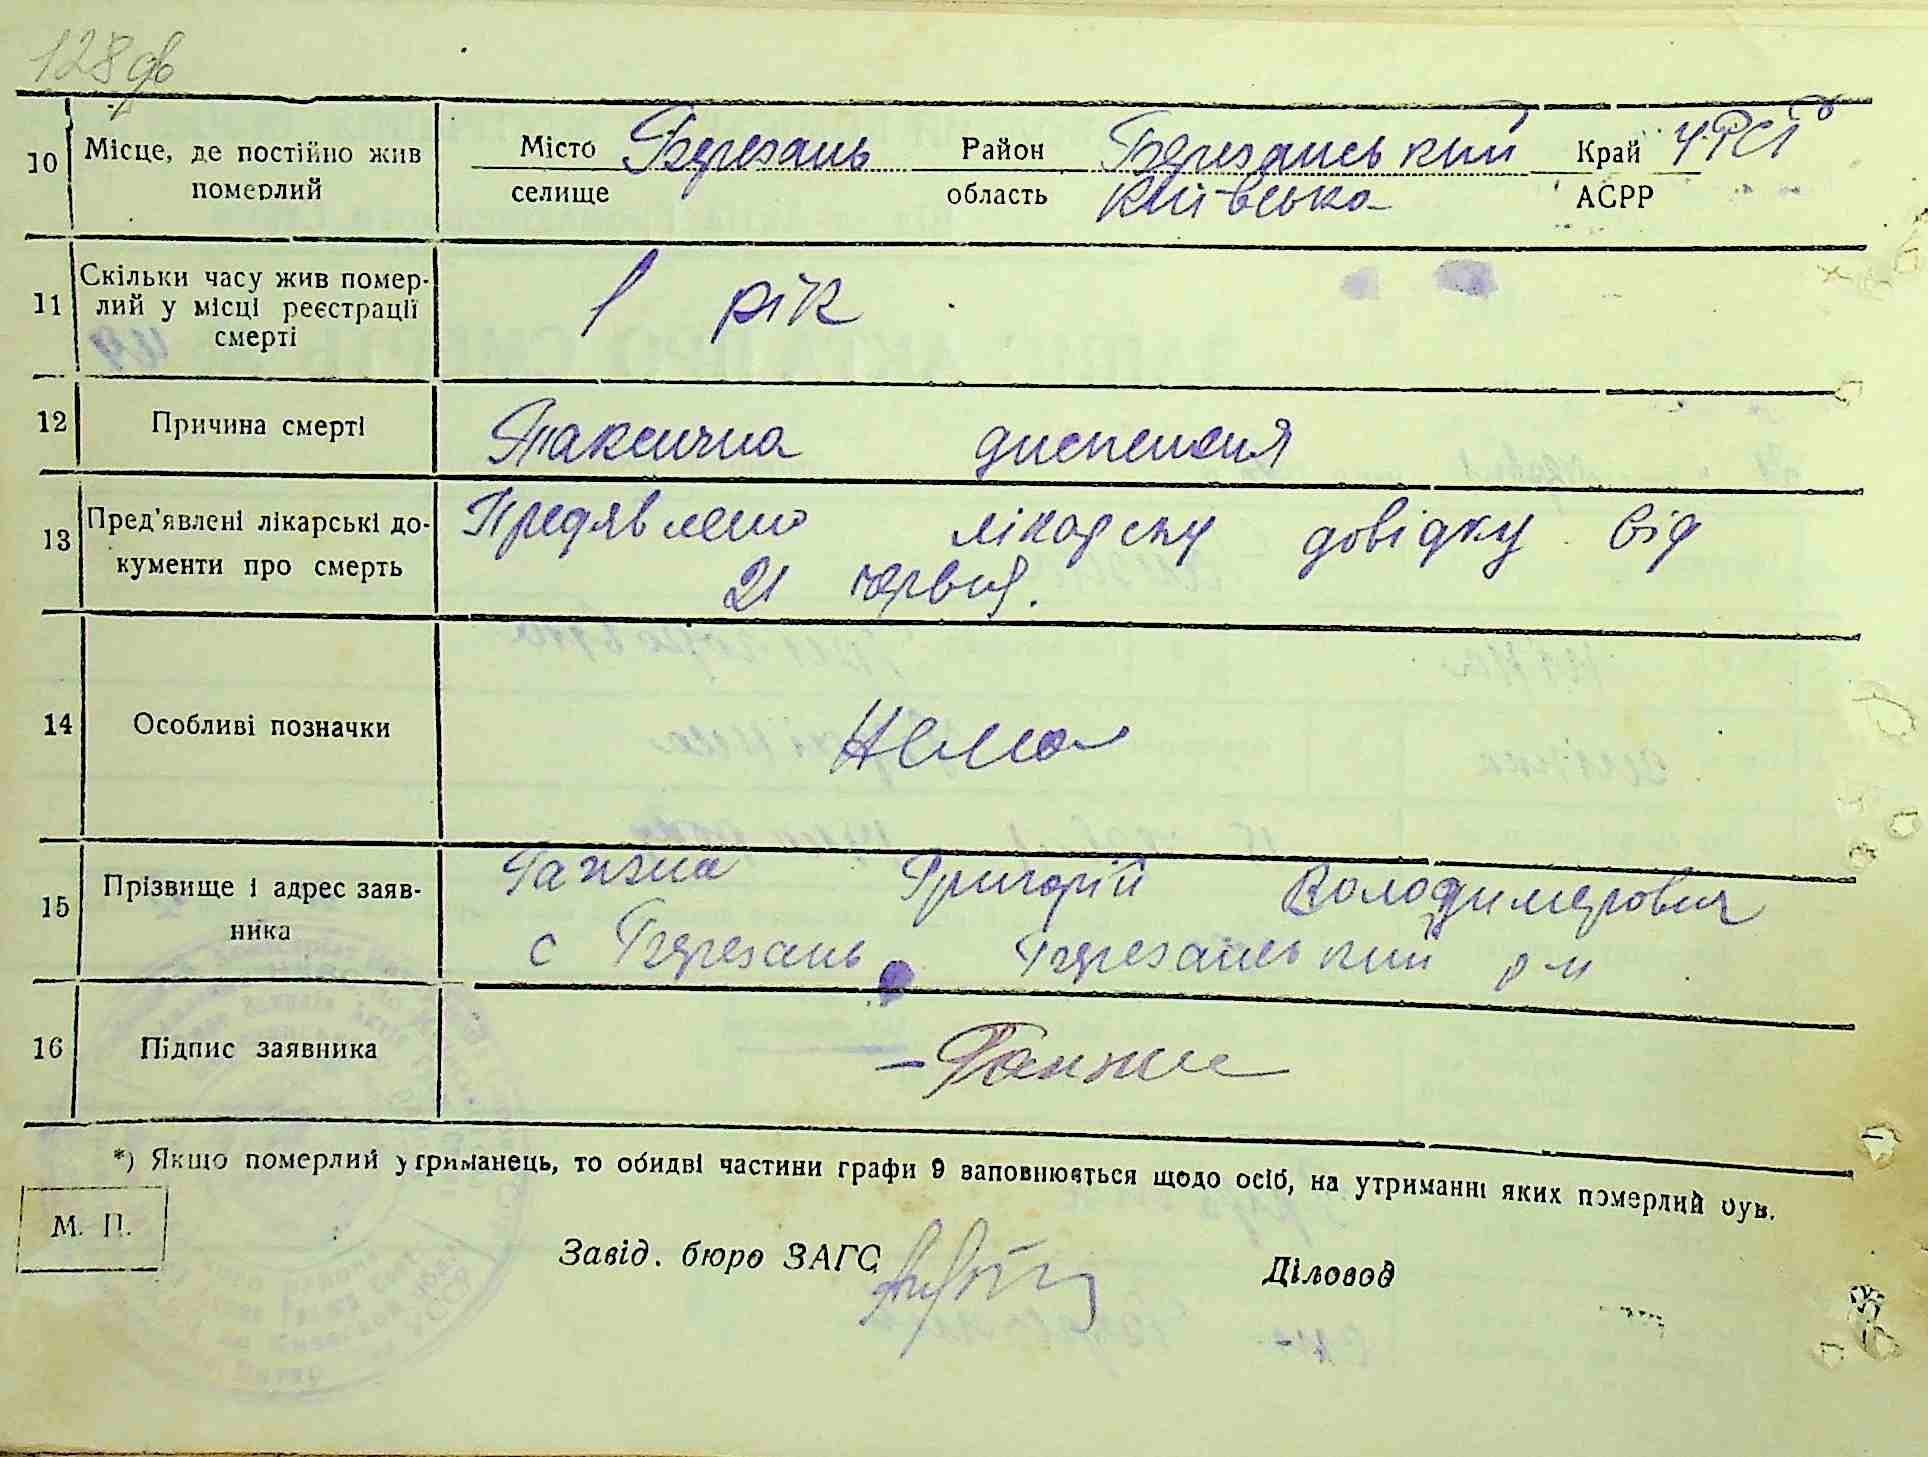 128 зв
10 Місце, де постійно жив померлий
Місто Березань Район Березанський Край УРСР
селище область Київська АСРР
11 Скільки часу жив помер-
лий у місці реєстрації
смерті
1 рік
12 Причина смерті Таксична диспепсия
13 Пред'явлені лікарські до-
кументи про смерть
Предявлено лікарску довідку від
21 червня.
14 Особливі позначки Нема
15 Прізвище і адрес заяв-
ника
Ганжа Григорій Володимерович
с Березань Березанський р-н
16 Підпис заявника - Ганжа
*) Якщо померлий утриманець, то обидві частини графи 9 заповнюється щодо осіб, на утриманні яких померлий був.
М. П.
Завід. бюро ЗАГС Діловод